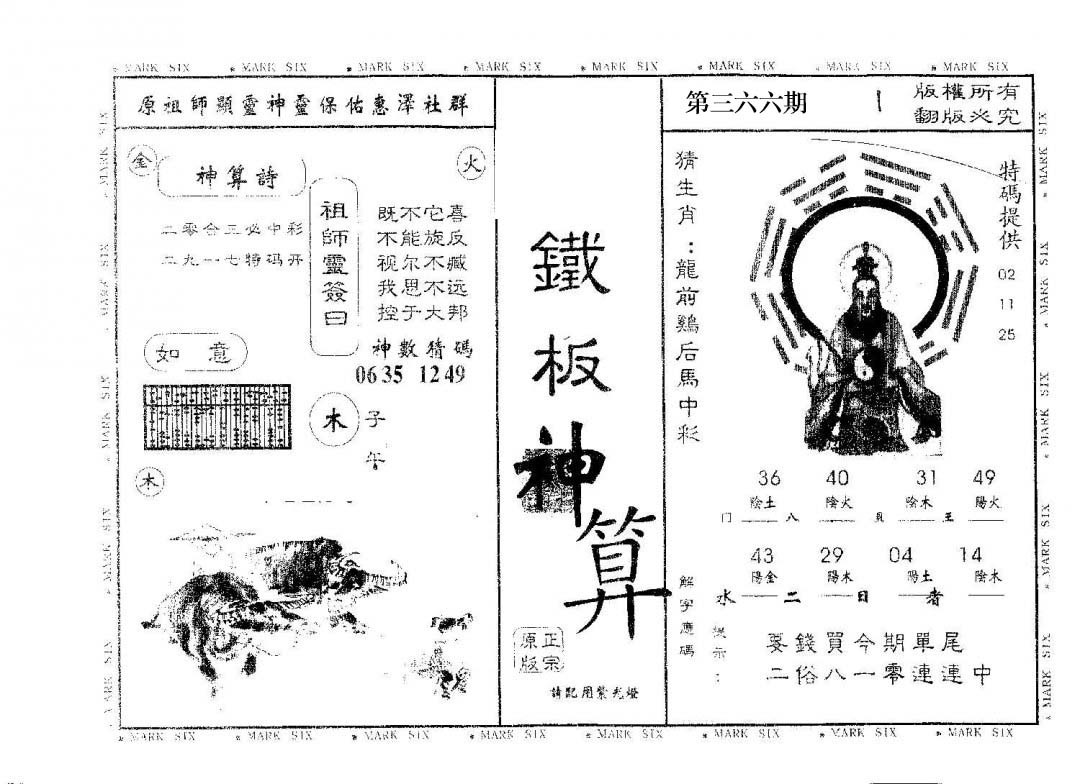 MARK SIX MARK SIX MARK SIX MARK SIX MARK SIX MARK SIX MARK SIX MARK SIX
原祖師顯靈神靈保佑惠澤社群
金
火
神算詩
二零合三必中彩
二九一七特码开
祖師靈簽曰
既不它喜
不能旋反
视尔不臧
我思不远
控于大邦
神數猜碼
06 35 12 49
如意
木
子
午
木
鐵板神算
正宗
原版
請配用紫光燈
第三六六期
版權所有
翻版必究
猜生肖:龍前鷄后馬中彩
特碼提供
02
11
25
36 40 31 49
陰土 陰火 陰木 陽火
门 八 見 王
43 29 04 14
陽金 陽木 陽土 陰木
水 二 日 者
解字應碼
提示:
要錢買今期單尾
二俗八一零連連中
MARK SIX MARK SIX MARK SIX MARK SIX MARK SIX MARK SIX MARK SIX MARK SIX